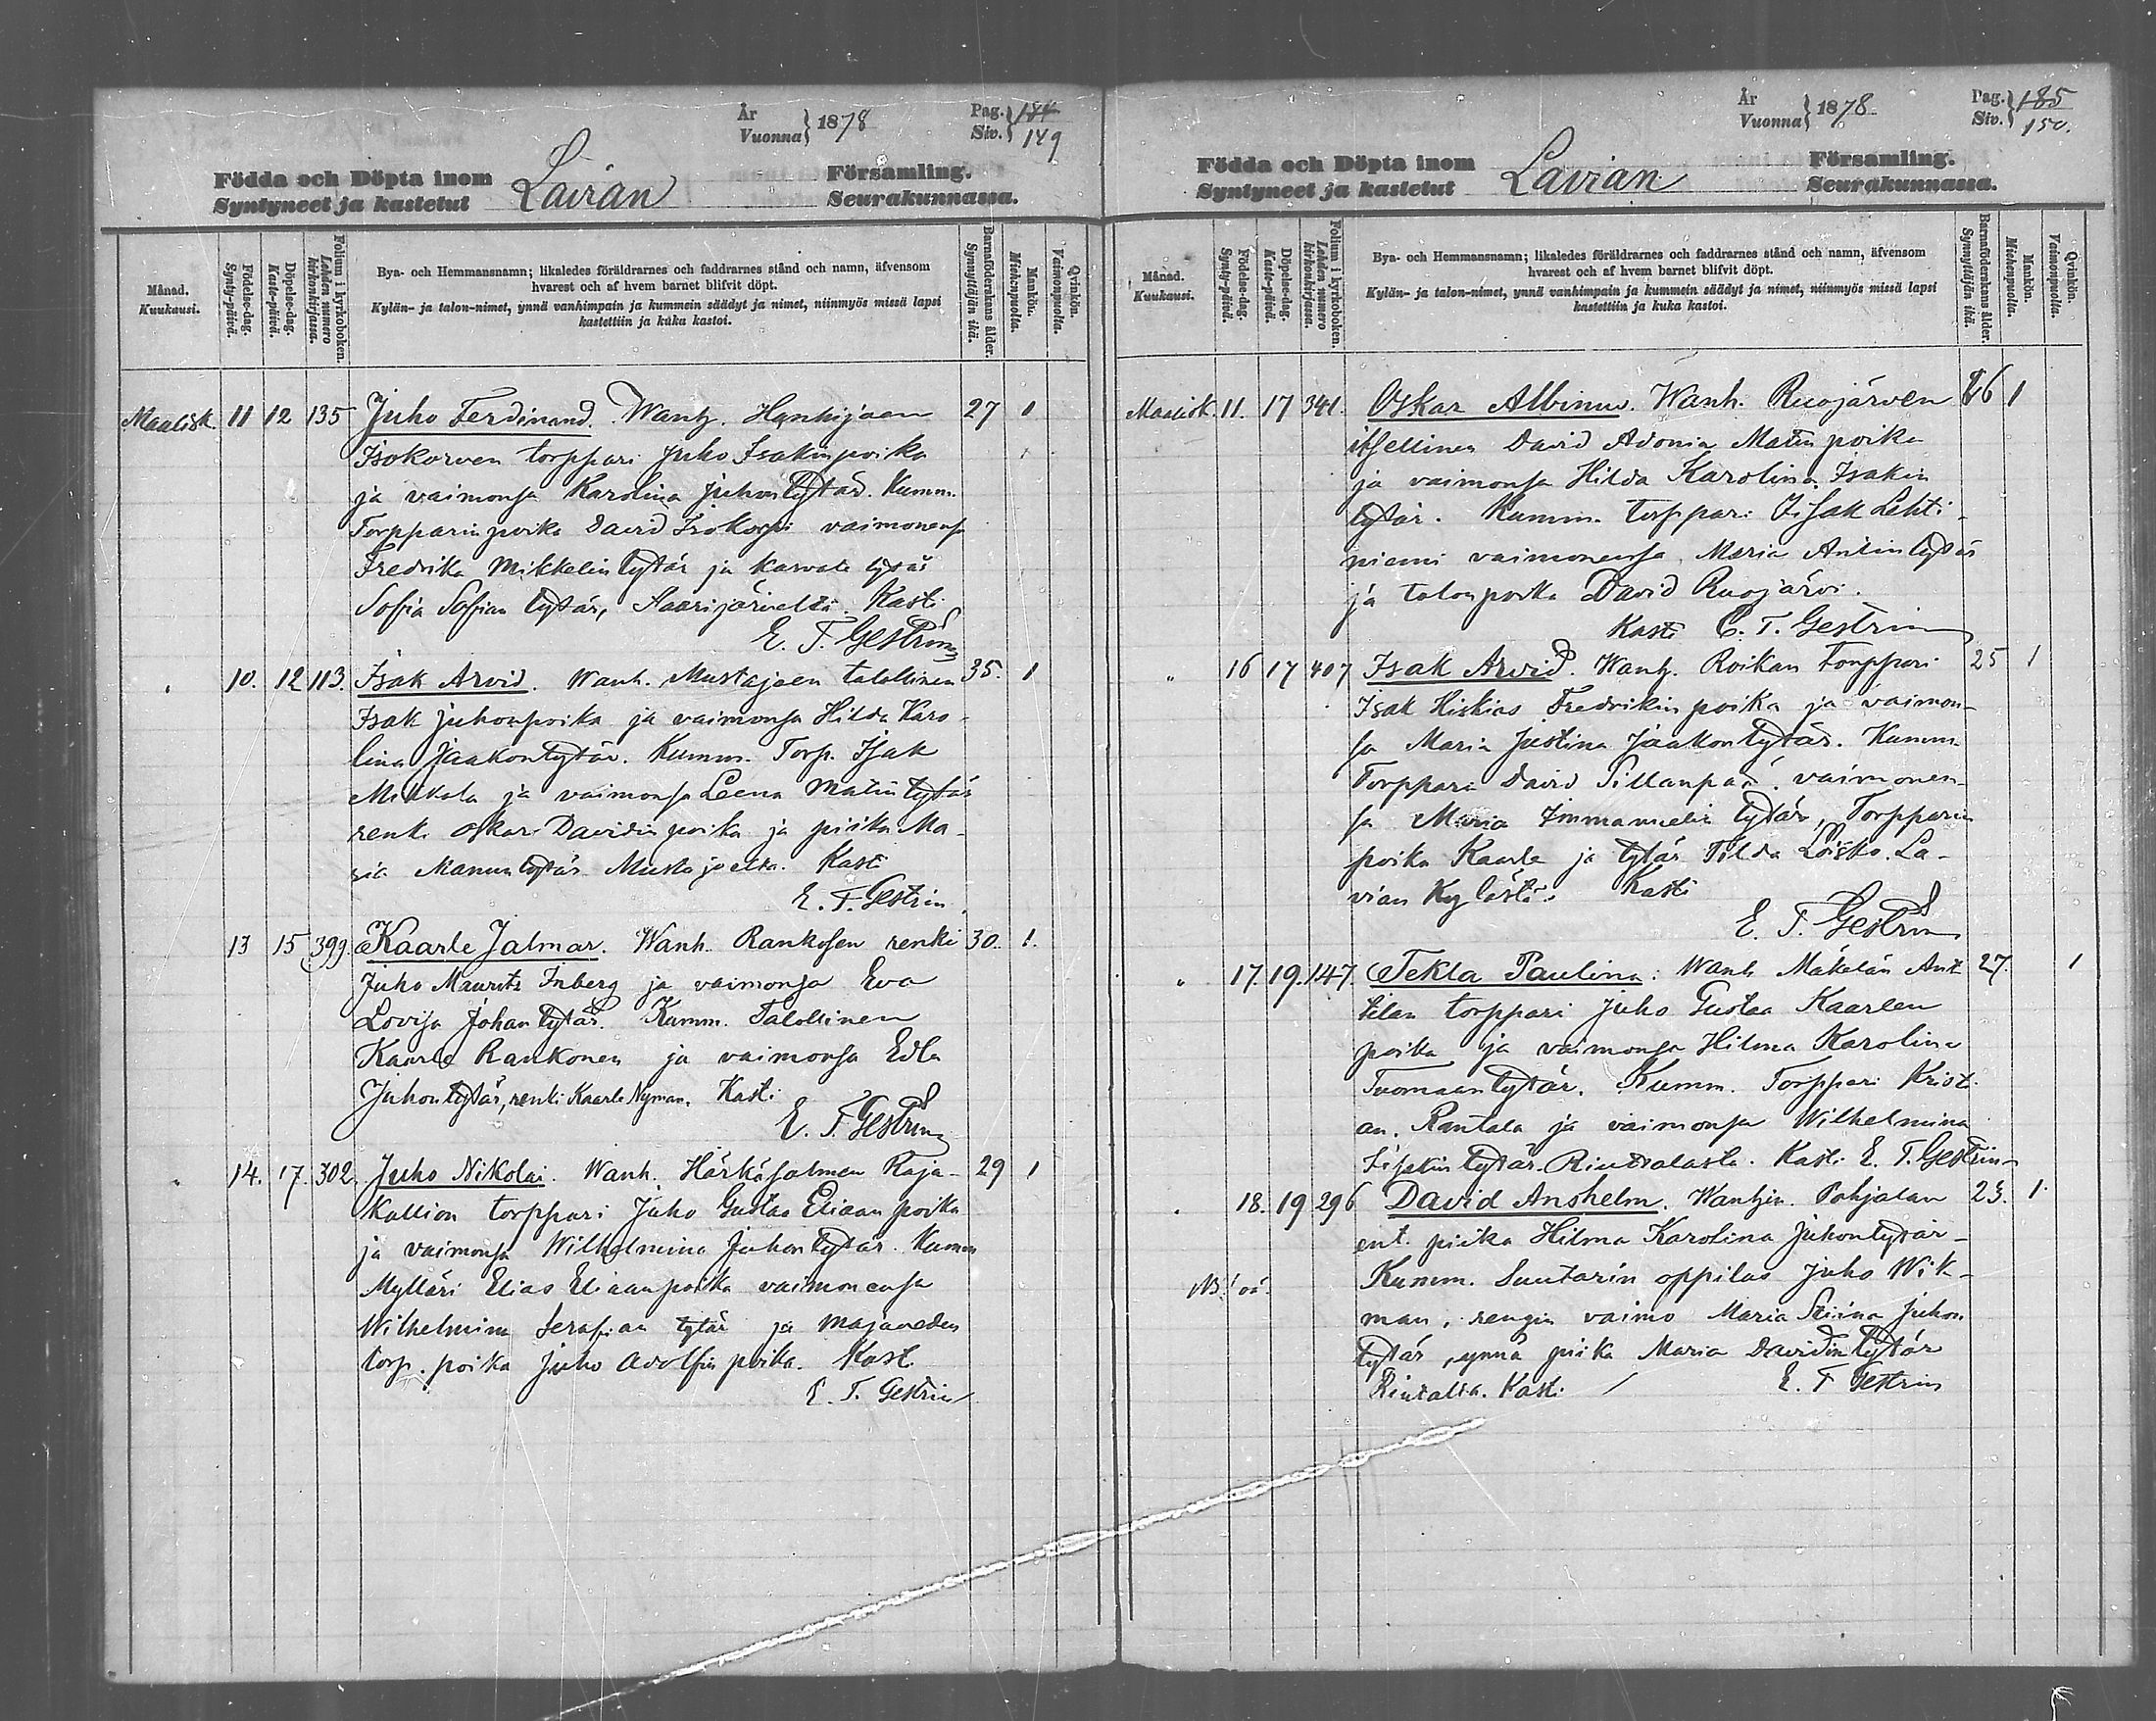 År
Vuonna } 1878
Pag.
Siv. } 184
149
Födda och Döpta inom
Syntyneet ja kastetut
Lavian
Församling.
Seurakunnassa.
Månad.
Kuukausi.
Födelse-dag.
Synty-päivä.
Döpelse-dag.
Kaste-päivä.
Folium i kyrkoboken.
Lehden numero kirkonkirjassa.
Bya- och Hemmansnamn; likaledes föräldrarnes och faddrarnes stånd och namn, äfvensom
hvarest och af hvem barnet blifvit döpt.
Kylän- ja talon-nimet, ynnä vanhimpain ja kummein säädyt ja nimet, niinmyös missä lapsi
kastettiin ja kuka kastoi.
Barnaföderskans ålder.
Synnyttäjän ikä.
Mankön.
Miehenpuolta.
Qvinkön.
Vaimonpuolta.
Maalisk. 11 12 135 Juho Ferdinand. Wanh. Honkijoen 27 1
Isokorven torppari Juho Isakinpoika
ja vaimonsa Karolina Juhontytär. Kumm.
Torpparinpoika David Isokorpi vaimonensa
Fredrika Mikkelintytär ja Kasvate tytär
Sofia Sofian tytär, Haarijärveltä. Kasti
E. T. Gestrin
" 10. 12 113. Isak Arvid. Wanh. Mustajoen talollinen 35. 1
Isak Juhonpoika ja vaimonsa Hilda Karo-
lina Jaakontytär. Kumm. Torp. Isak
Mikkola ja vaimonsa Leena Matintytär
renki Oskar Davidinpoika ja piika Ma-
ria Manuntytär Mustajoelta. Kasti
E. T. Gestrin
13 15 399. Kaarle Jalmar. Wanh. Rankosen renki 30. 1.
Juho Maurits Inberg ja vaimonsa Eva
Lovisa Johantytär. Kumm. Talollinen
Kaarle Rankonen ja vaimonsa Edla
Juhontytär, renki Kaarle Nyman. Kasti
E. T. Gestrin
" 14. 17. 302. Juho Nikolai. Wanh. Härkäsalmen Raja- 29 1
Kallion torppari Juho Gustaa Eliaan poika
ja vaimonsa Wilhelmina Juhontytär. Kumm
Mylläri Elias Eliaanpoika vaimonensa
Wilhelmina Serafiaa tytär ja Majaveden
torp. poika Juho Adolfin poika. Kasti
E. T. Gestrin
År
Vuonna } 1878
Pag.
Siv. } 185
150.
Födda och Döpta inom
Syntyneet ja kastetut
Lavian
Församling.
Seurakunnassa.
Månad.
Kuukausi.
Födelse-dag.
Synty-päivä.
Döpelse-dag.
Kaste-päivä.
Folium i kyrkoboken.
Lehden numero kirkonkirjassa.
Bya- och Hemmansnamn; likaledes föräldrarnes och faddrarnes stånd och namn, äfvensom
hvarest och af hvem barnet blifvit döpt.
Kylän- ja talon-nimet, ynnä vanhimpain ja kummein säädyt ja nimet, niinmyös missä lapsi
kastettiin ja kuka kastoi.
Barnaföderskans ålder.
Synnyttäjän ikä.
Mankön.
Miehenpuolta.
Qvinkön.
Vaimonpuolta.
Maalisk. 11. 17 341. Oskar Albinus. Wanh. Ruojärven 26 1
itsellinen David Adonia Matin poika
ja vaimonsa Hilda Karolina Isakin
tytär. Kumm. torppari Iisak Lehti-
niemi vaimonensa Maria Antintytär
ja talonpoika David Ruojärvi.
Kasti E. T. Gestrin
" 16 17 407 Isak Arvid. Wanh. Roikan Torppari 25 1
Isak Hiskias Fredrikin poika ja vaimon-
sa Maria Justina Jaakontytär. Kumm.
Torppari David Sillanpää, vaimonen-
sa Maria Immanuelin tytär, Torpparin
poika Kaarle ja tytär Tilda Loisko. La-
vian Kylästä. Kasti
E. T. Gestrin
" 17. 19. 147. Tekla Paulina: Wanh Mäkelän Ant 27. 1
tilan torppari Juho Gustaa Kaarlen
poika ja vaimonsa Hilma Karolina
Tuomaantytär. Kumm. Torppari Krist.
an. Rantala ja vaimonsa Wilhelmina
Iisakin tytär. Rintalasta. Kasti E. T. Gestrin
" 18. 19 296 David Anshelm. Wanhin. Pohjalan 23. 1.
ent. piika Hilma Karolina Juhontytär-
NB! Kumm. Suutarin oppilas Juho Wik-
man, rengin vaimo Maria Stiina Juhon
tytär, ynnä piika Maria Davidintytär
Kasti E. T. Gestrin